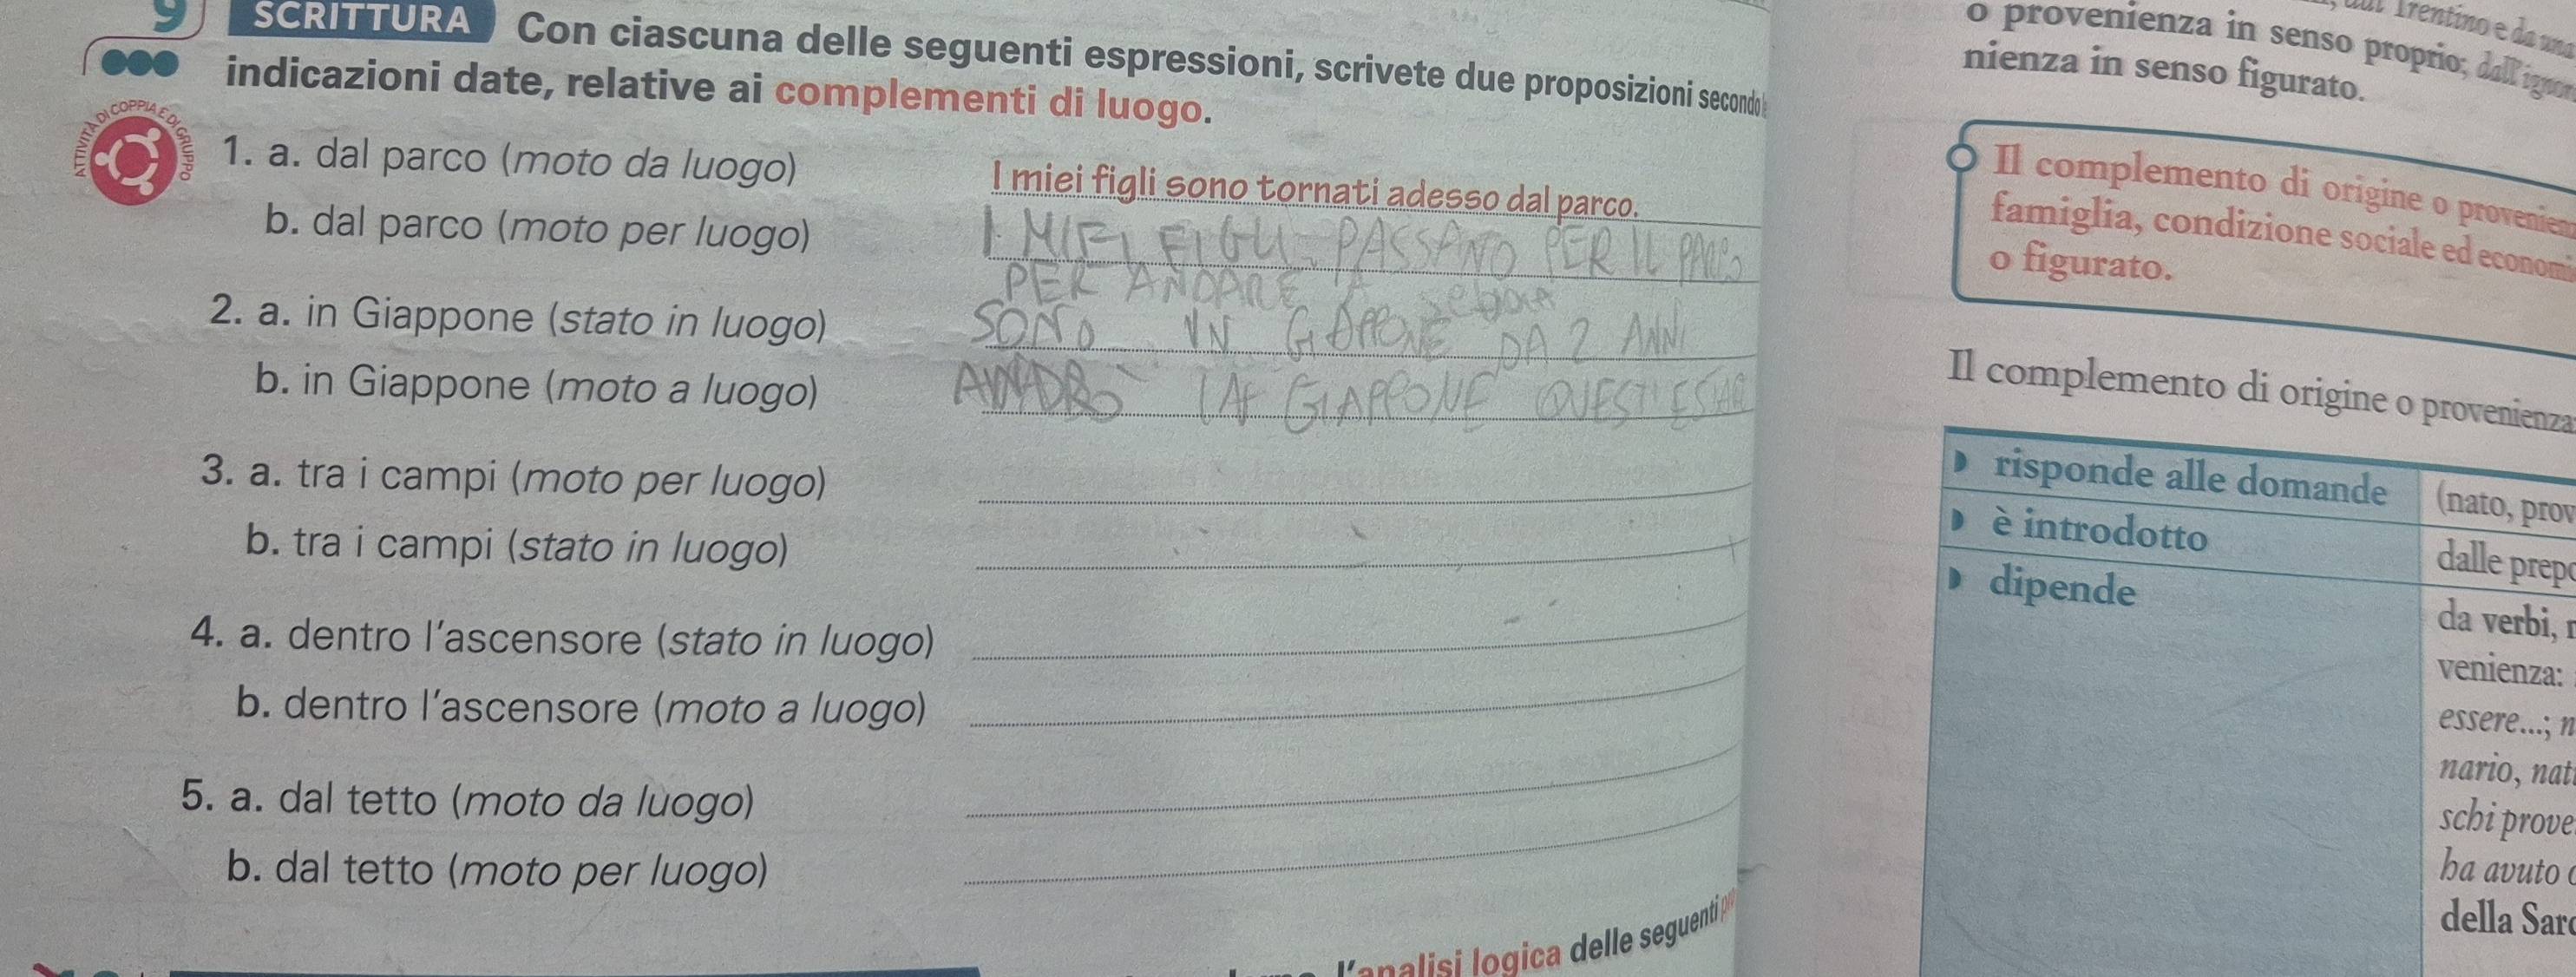 9 SCRITTURA Con ciascuna delle seguenti espressioni, scrivete due proposizioni secondo
indicazioni date, relative ai complementi di luogo.
ATTIVITÀ DI COPPIA E DI GRUPPO
1. a. dal parco (moto da luogo) I miei figli sono tornati adesso dal parco.
b. dal parco (moto per luogo) I MIEI FIGLI PASSANO PER IL PARCO
PER ANDARE A
2. a. in Giappone (stato in luogo) SONO IN GIAPPONE DA 2 ANNI
b. in Giappone (moto a luogo) GIAPPONE
3. a. tra i campi (moto per luogo)
b. tra i campi (stato in luogo)
4. a. dentro l'ascensore (stato in luogo)
b. dentro l'ascensore (moto a luogo)
5. a. dal tetto (moto da luogo)
b. dal tetto (moto per luogo)
l'analisi logica delle seguenti
Trentino e da una
o provenienza in senso proprio;
nienza in senso figurato.
Il complemento di origine o provenien
famiglia, condizione sociale ed economi
o figurato.
Il complemento di origine o provenienza
risponde alle domande (nato, prov
è introdotto dalle prepo
dipende da verbi,
venienza:
essere...; n
nario, nat
schi prove
ha avuto
della Sar